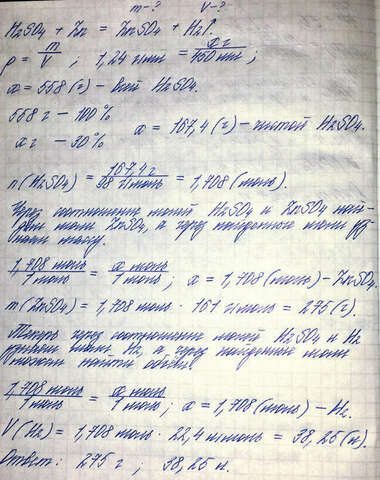 m-? V-?
H₂SO₄ + Zn = ZnSO₄ + H₂↑.
ρ = m/V ; 1,24 г/мл = x г/450 мл ;
x = 558 (г) - всей H₂SO₄.
558 г - 100%
x г - 30% x = 167,4 (г) - чистой H₂SO₄.
n(H₂SO₄) = 167,4 г/98 г/моль = 1,708 (моль).
Через соотношение молей H₂SO₄ и ZnSO₄ най-
моли ZnSO₄, а через найденные моли
массу.
1,708 моль/1 моль = x моль/1 моль ; x = 1,708 (моль) - ZnSO₄.
m(ZnSO₄) = 1,708 моль · 161 г/моль = 275 (г).
Теперь через соотношение молей H₂SO₄ и H₂
моли H₂, а через найденные моли
можем найти объём.
1,708 моль/1 моль = x моль/1 моль ; x = 1,708 (моль) - H₂.
V(H₂) = 1,708 моль · 22,4 л/моль = 38,25 (л).
Ответ: 275 г ; 38,25 л.